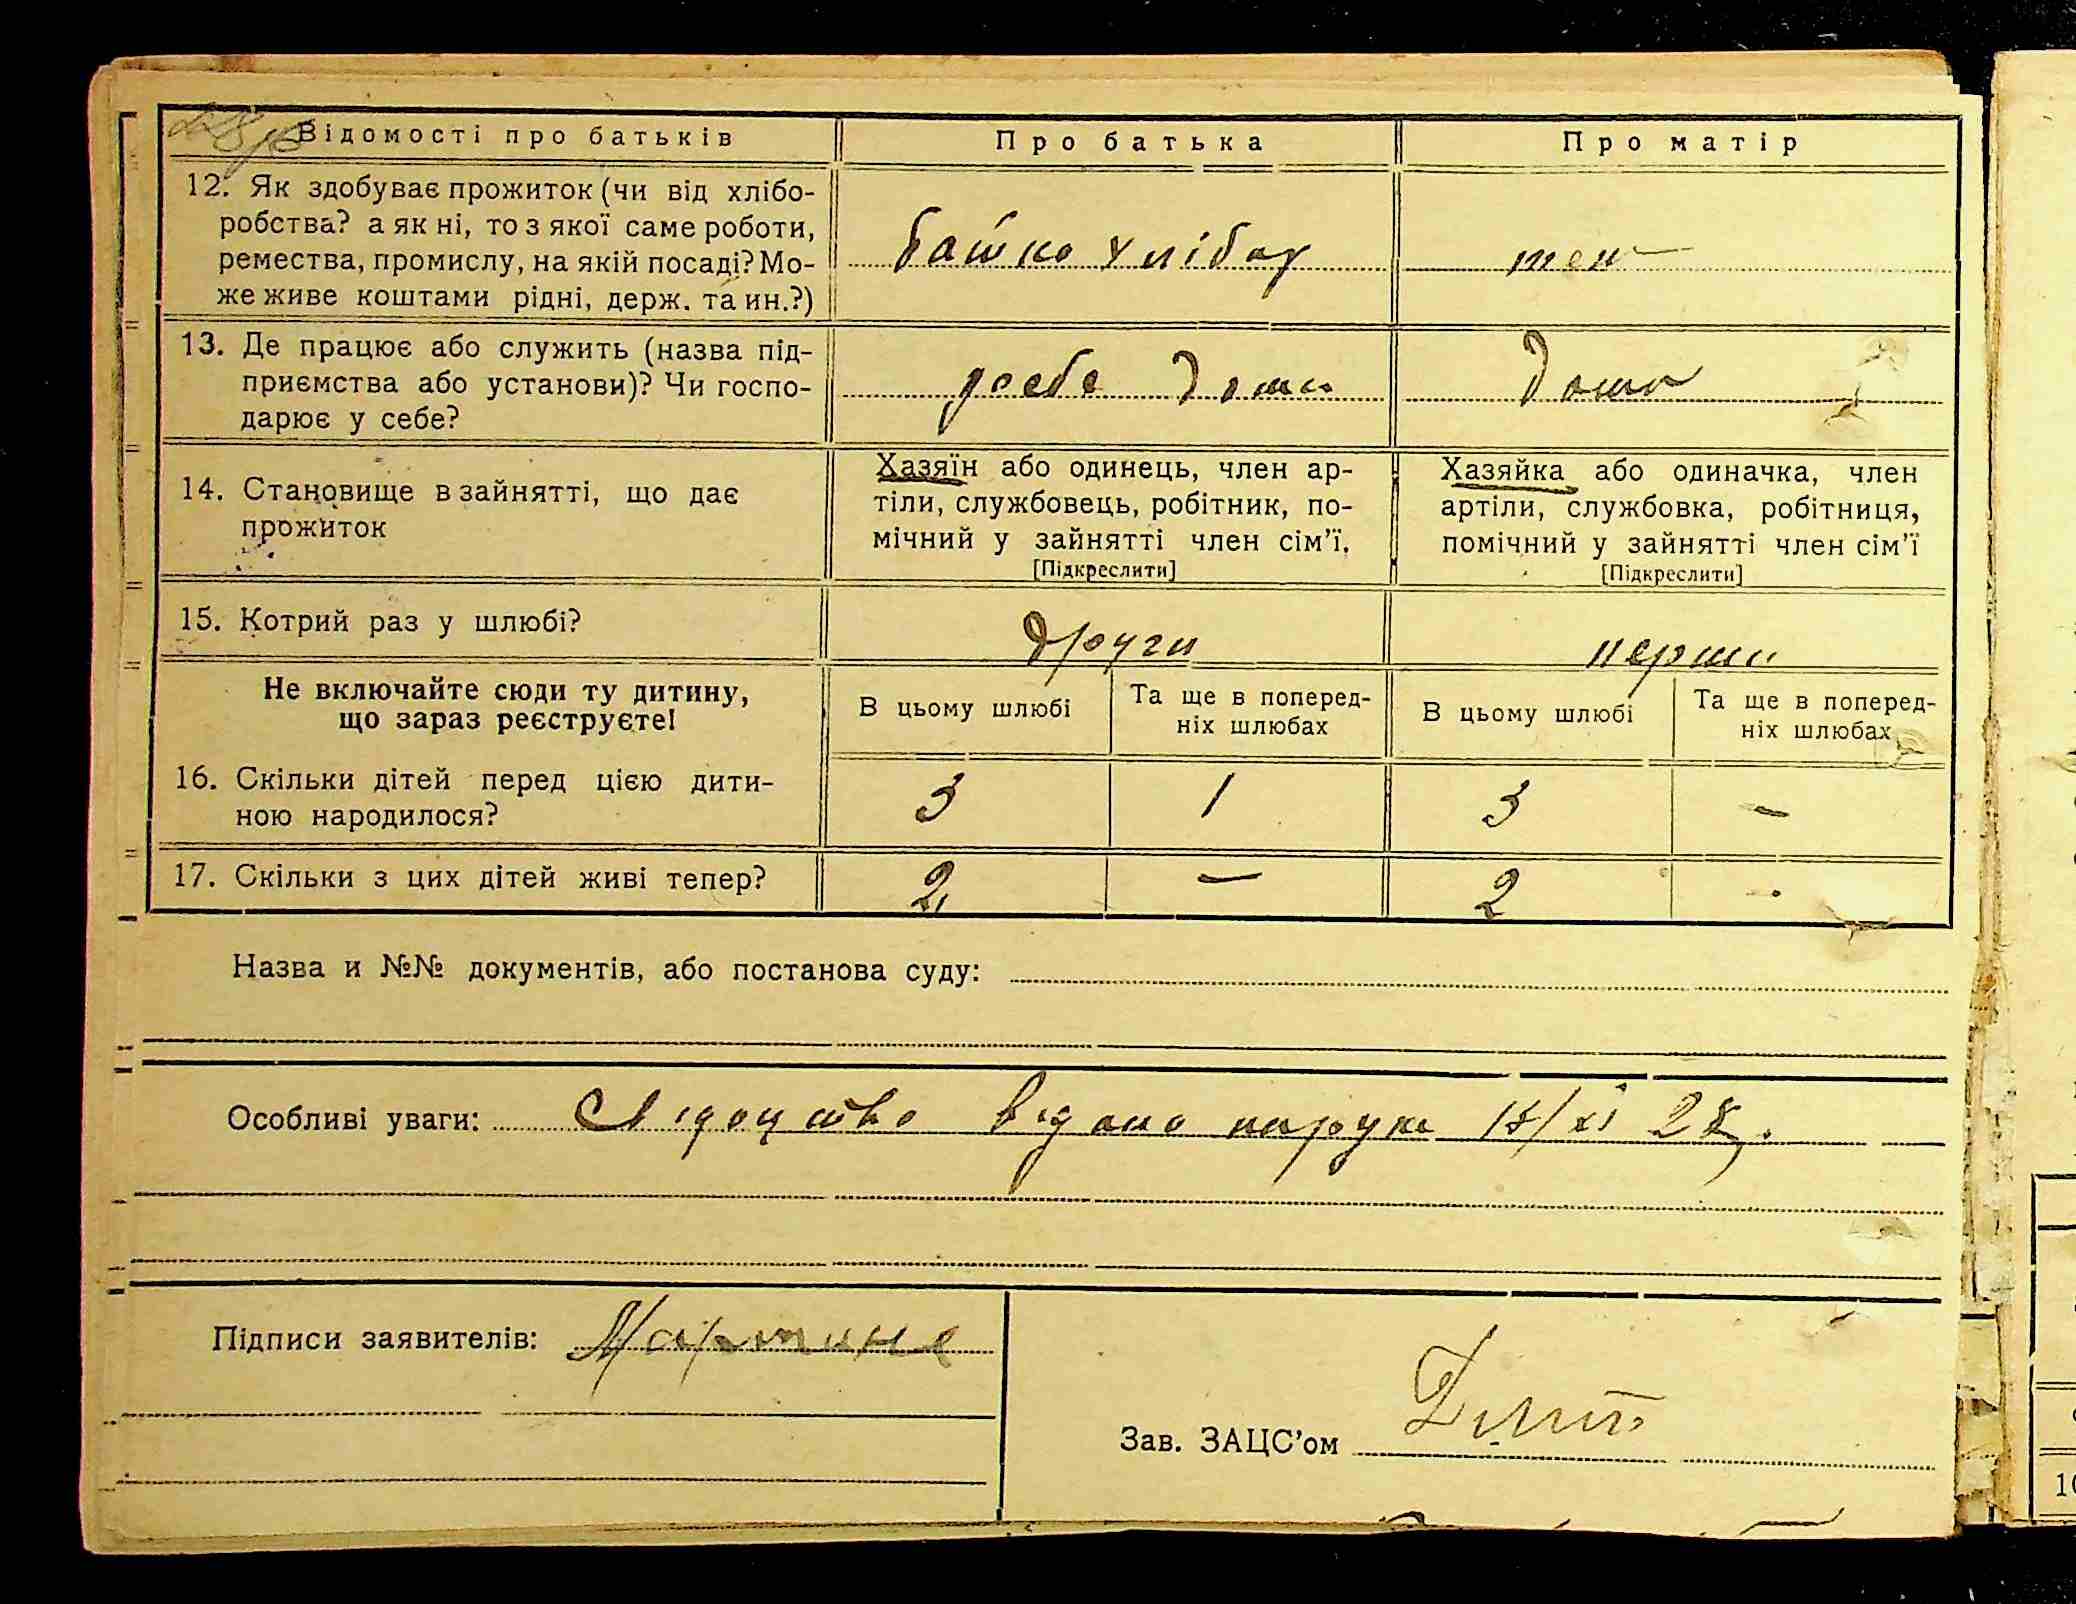 Відомості про батьків
Про батька
Про матір
12. Як здобуває прожиток (чи від хлібо-
робства? а як ні, то з якої саме роботи,
ремества, промислу, на якій посаді? Мо-
же живе коштами рідні, держ. та ин.?)
теж
13. Де працює або служить (назва під-
приємства або установи)? Чи госпо-
дарює у себе?
дома
дома
14. Становище в зайнятті, що дає
прожиток
Хазяїн або одинець, член ар-
тіли, службовець, робітник, по-
мічний у зайнятті член сім'ї.
[Підкреслити]
Хазяйка або одиначка, член
артіли, службовка, робітниця,
помічний у зайнятті член сім'ї
[Підкреслити]
15. Котрий раз у шлюбі?
други
перши
Не включайте сюди ту дитину,
що зараз реєструєте!
В цьому шлюбі
Та ще в поперед-
ніх шлюбах
В цьому шлюбі
Та ще в поперед-
ніх шлюбах
16. Скільки дітей перед цією дити-
ною народилося?
3
1
3
-
17. Скільки з цих дітей живі тепер?
2
-
2
Назва и №№ документів, або постанова суду:
Особливі уваги: Свідоцтво видано на руки XI 28
Підписи заявителів:
Зав. ЗАЦС'ом
10